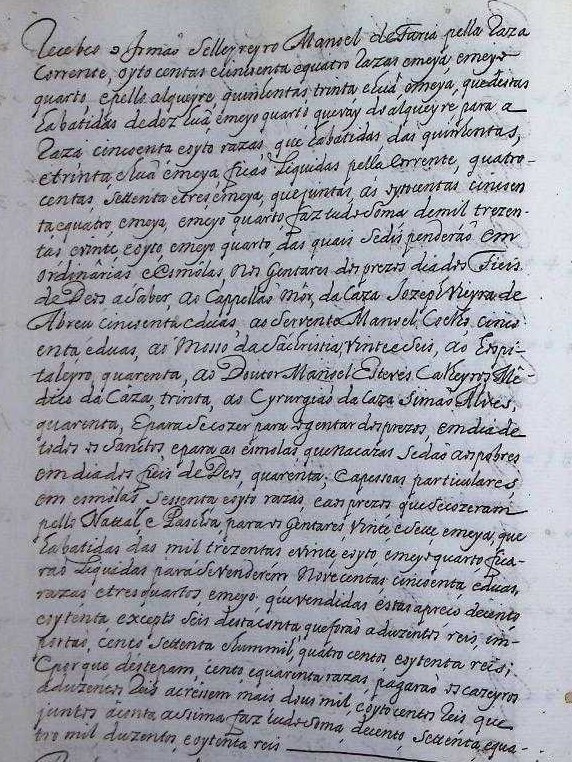 Recebeo o Irmaõ Selleyreyro Manoel de Faria pella Raza
Corrente, oyto centas e cincoenta e quatro razas e meya, e meyo
quarto, e pello alqueyre, quinhentas trinta e huã e meya, que destas
abatidas dedez huã, e meyo quarto que vay do alqueyre para a
Raza cincoenta e oyto razas, que abatidas das quinhentas,
e trinta e huã e meya ficaõ Liquidas pella Corrente, quatro-
centas, settenta e tres e meya, que juntas, as oytocentas cincoen
ta e quatro, e meya, e meyo quarto faz tudo soma de mil trezen-
tas e vinte e oyto e meyo quarto das quais se dispenderaõ em
ordinarias e esmolas nos Gentares dos prezos dia dos Fieis
de Deos a saber, ao Cappellaõ Mòr, da Caza Jozeph Vieyra de
Abreu cincoenta e duas, ao Servente Manoel Coelho cinco
enta e duas, ao Mosso da Sacristia, vinte e seis, ao Espi-
taleyro, quarenta, ao Doutor Manoel Esteves Caveyros Mé-
dico da Caza, trinta, ao Cyrurgiaõ da Caza Simaõ Alves,
quarenta, e para se cozer para o gentar dos prezos, em dia de
todos os Sanctos e para as esmolas que na caza se daõ aos pobres
em dia dos fieis de Deos, quarenta, e a pessoas particulares
em esmolas sessenta e oyto razas, e aos prezos que se cozeram
pello Nattal, e Pascoa, para os Gentares, vinte e sete e meya, que
abatidas das mil trezentas e vinte e oyto, e meyo quarto fica-
raõ Liquidas para se venderem Novecentas cincoenta, e duas,
razas e tres quartos, e meyo que vendidas estas a preço de cento
e oytenta, excepto seis desta conta que foraõ a duzentos reis, im-
portaõ, cento settenta e hum mil, quatro centos, e oytenta reis;
E porque destas, cento e quarenta razas, pagaraõ os cazeyros
a duzentos reis acresem mais dous mil, e oytocentos Reis que
juntos á conta assima faz tudo soma, de cento, settenta, e qua-
tro mil duzentos, e oytenta reis